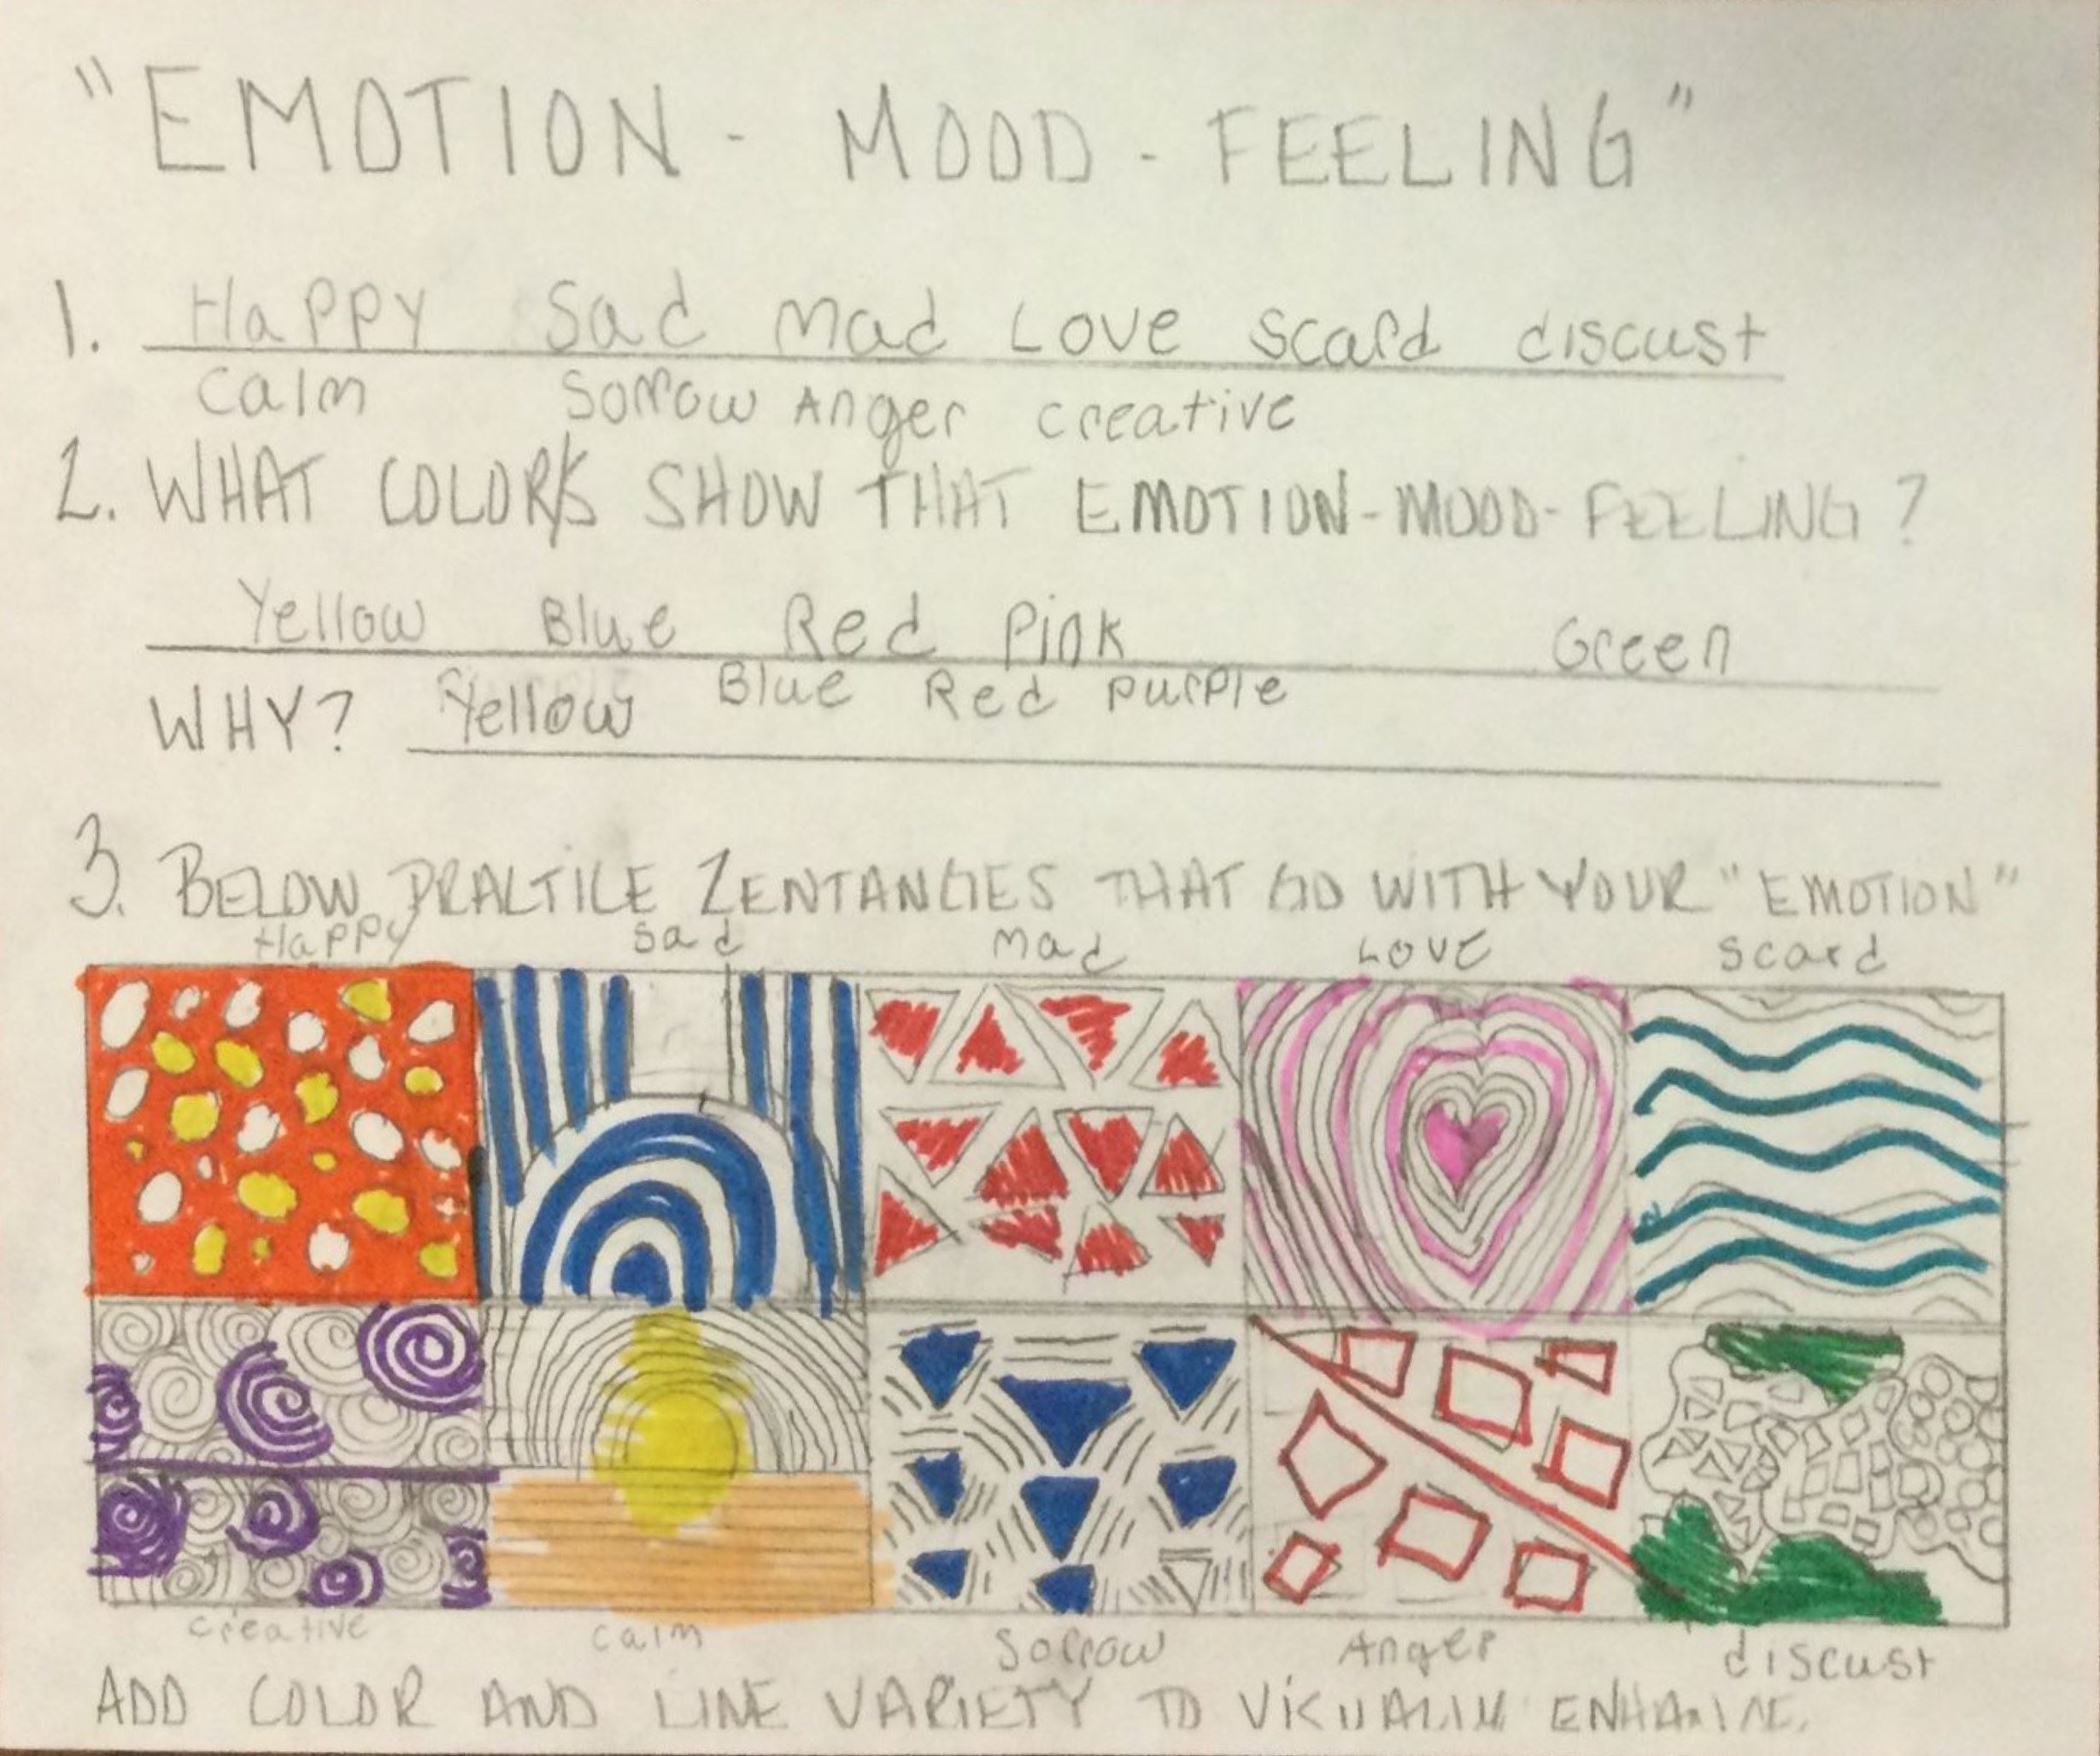 "EMOTION - MOOD - FEELING"
1. Happy Sad Mad Love scard discust
Calm Sorrow Anger creative
2. WHAT COLOR/S SHOW THAT EMOTION-MOOD-FEELING?
Yellow Blue Red Pink Green
Yellow Blue Red purple
WHY?
3. BELOW PRACTICE ZENTANGLES THAT GO WITH YOUR "EMOTION"
Happy Sad Mad Love scard
creative calm Sorrow Anger discust
ADD COLOR AND LINE VARIETY TO VISUALLY ENHANCE.